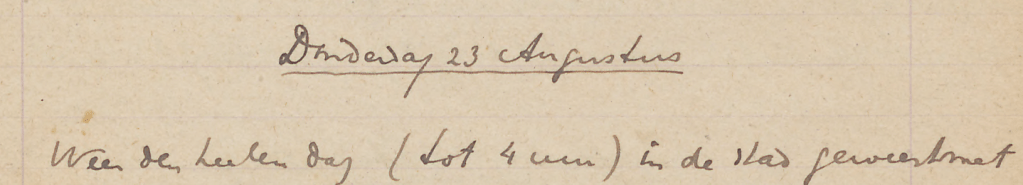 Donderdag 23 Augustus
Weer den heelen dag (tot 4 uur) in de stad geweest met